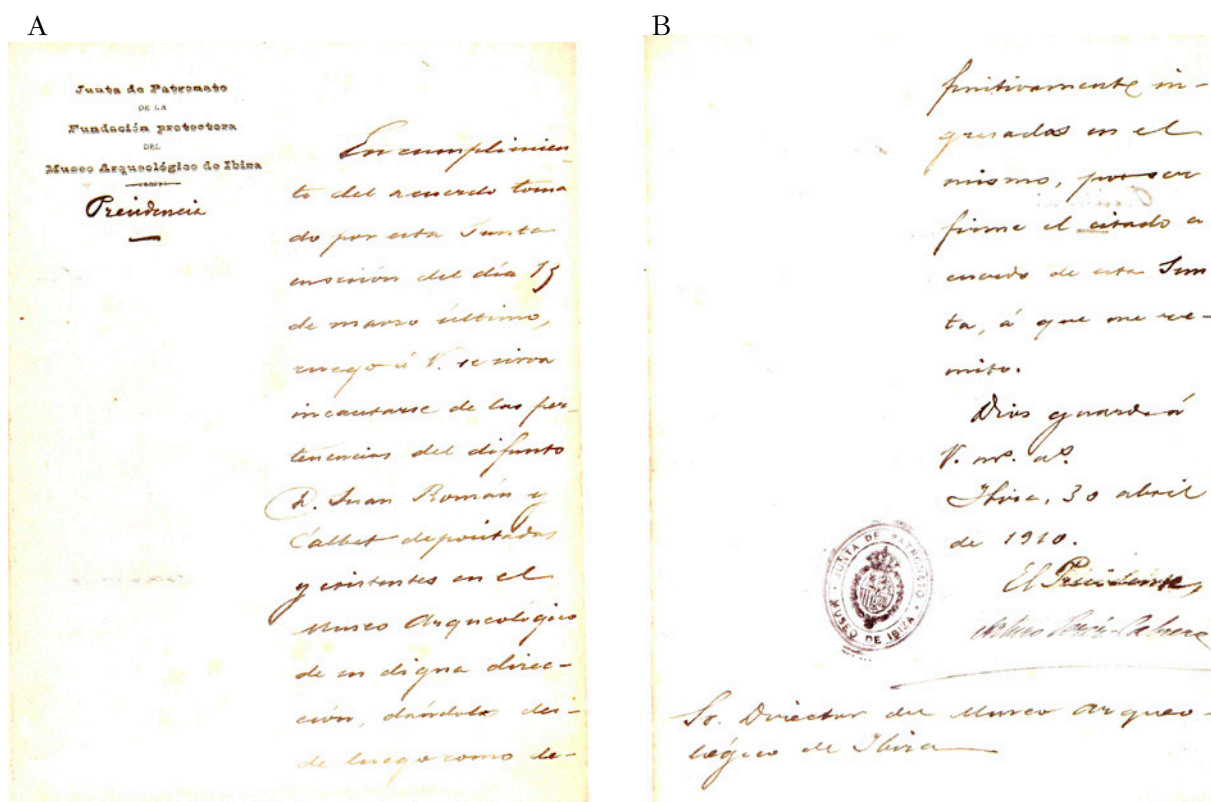 A
Junta de Patronato
DE LA
Fundación protectora
DEL
Museo Arqueológico de Ibiza
Presidencia
En cumplimien
to del acuerdo toma
do por esta Junta
en sesión del día 15
de marzo último,
ruego á V. se sirva
incautarse de las per-
tenencias del difunto
D. Juan Román y
Calbet depositadas
y existentes en el
Museo Arqueológico
de su digna direc-
ción, dándolas des-
de luego como de-
B
finitivamente in-
gresadas en el
mismo, por ser
firme el citado a
cuerdo de esta Jun
ta, á que me re-
mito.
Dios guarde á
V. ms. as.
Ibiza, 30 abril
de 1910.
El Presidente,
Arturo Pérez-Cabrero
JUNTA DE PATRONATO
MUSEO DE IBIZA
Sr. Director del Museo Arqueo-
lógico de Ibiza